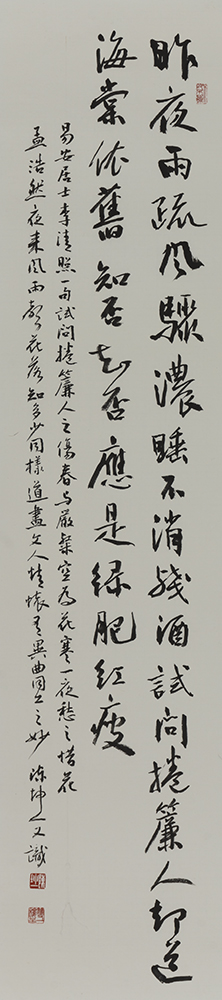 昨夜雨疏風驟濃睡不消殘酒試問捲簾人却道
海棠依舊知否知否應是綠肥紅瘦
易安居士李清照一句試問捲簾人之傷春与嚴粲空為花寒一夜愁之惜花
孟浩然夜来風雨聲花落知多少同樣道盡文人情懷有異曲同工之妙 陳坤一又識